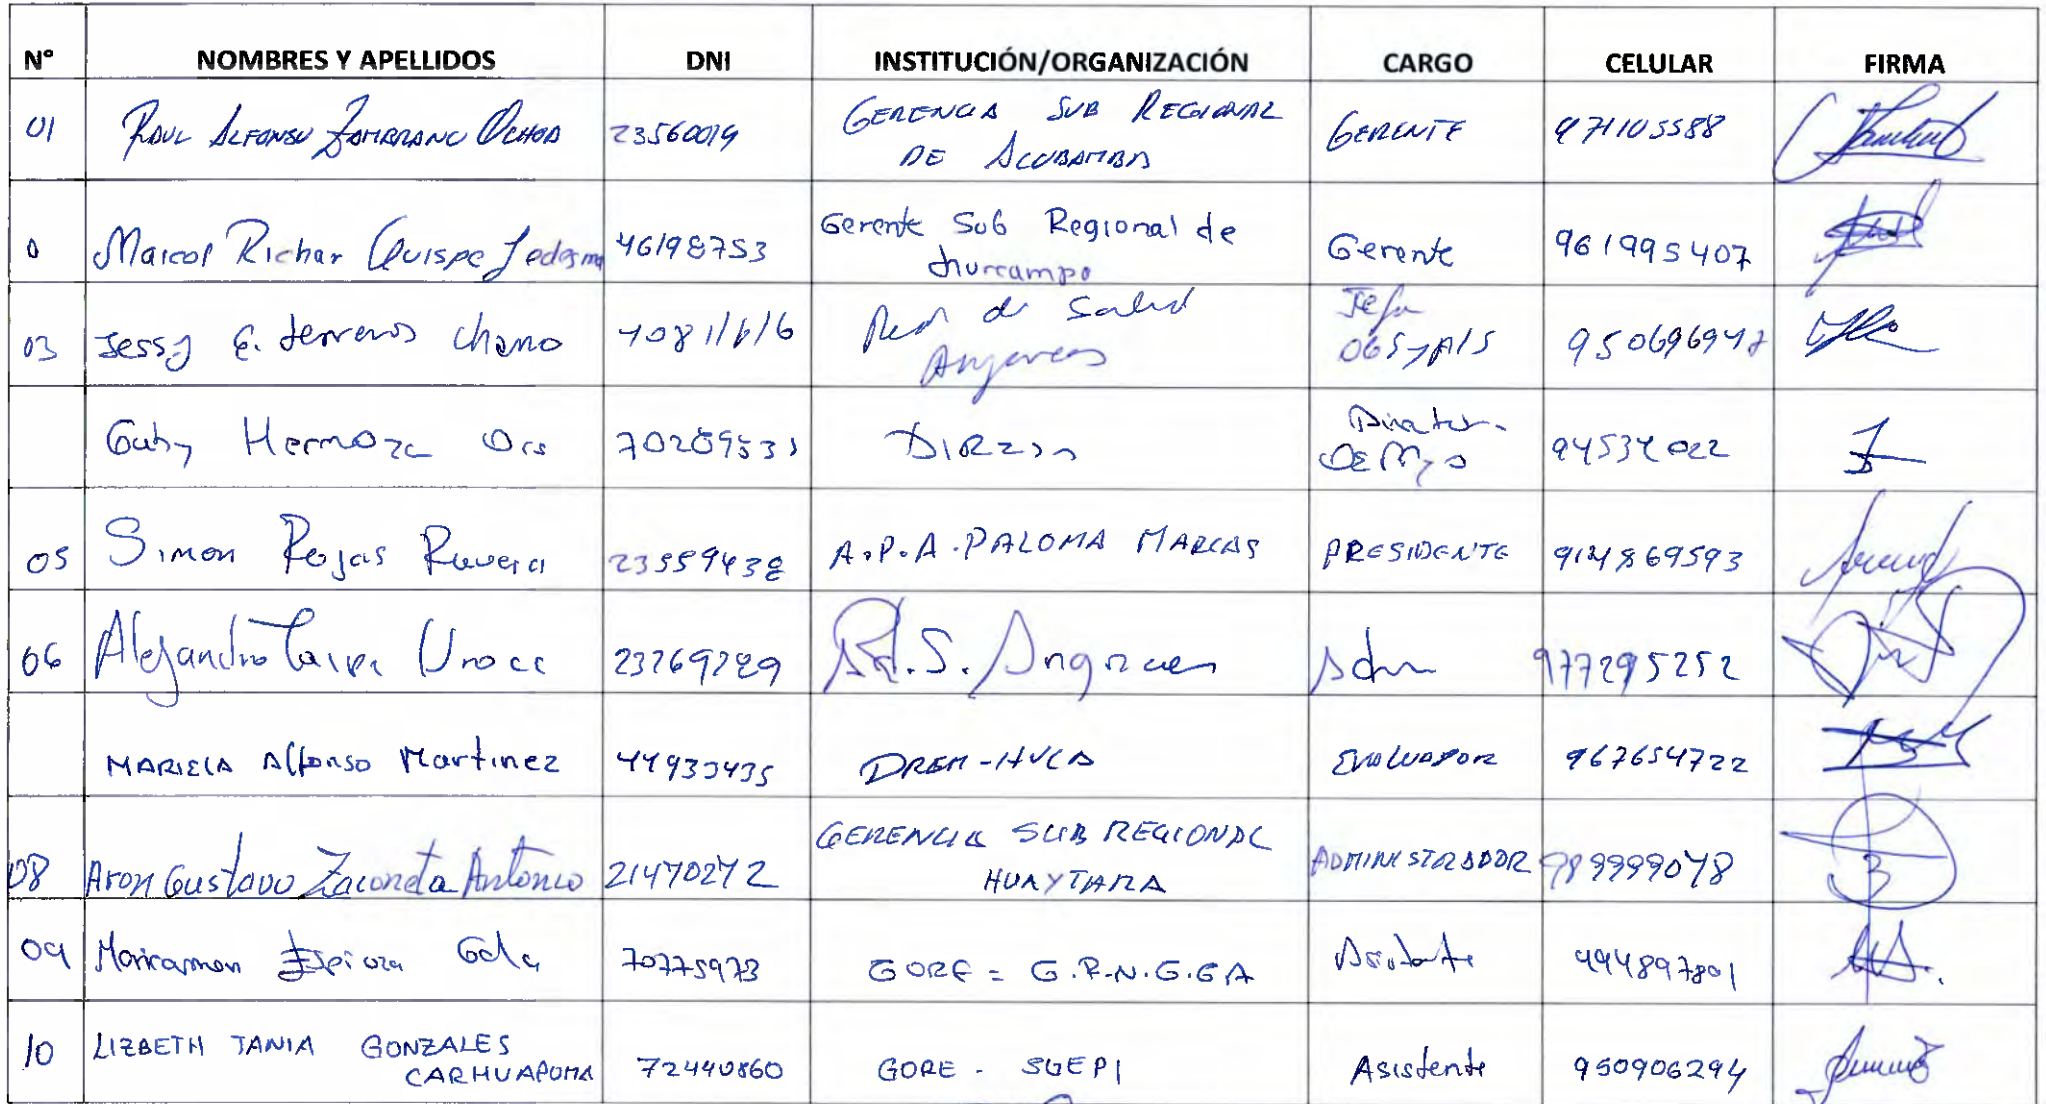 N° NOMBRES Y APELLIDOS DNI INSTITUCIÓN/ORGANIZACIÓN CARGO CELULAR FIRMA
01 RAUL ALFONSO ZAMBRANO OCHOA 23560019 GERENCIA SUB REGIONAL DE ACOBAMBA GERENTE 971105588
0 Marcol Richar Quispe Ledesma 46198753 Gerente Sub Regional de churcampo Gerente 961995407
03 Jessy E. terreros chano Red de Salud Angaraes Jefa
Gaby Hermoza DIRESA
05 Simon Rojas Rivera 23559438 A.P.A. PALOMA MARCAS PRESIDENTE 914869593
06 Alejandro 23269289 R.S. Angaraes Adm 977295252
MARIELA Alfonso Martinez 44933435 DREM-HVCA EVALUADOR 967654722
08 Aron Gustavo Zaconeta Antonio 21470272 GERENCIA SUB REGIONAL HUAYTARA ADMINISTRADOR 989999078
09 Maricarmen Espinoza 70775973 GORE = G.R.N.G.GA Asistente 944897801
10 LIZBETH TANIA GONZALES CARHUAPOMA 72440860 GORE - SGEPI Asistente 950906294